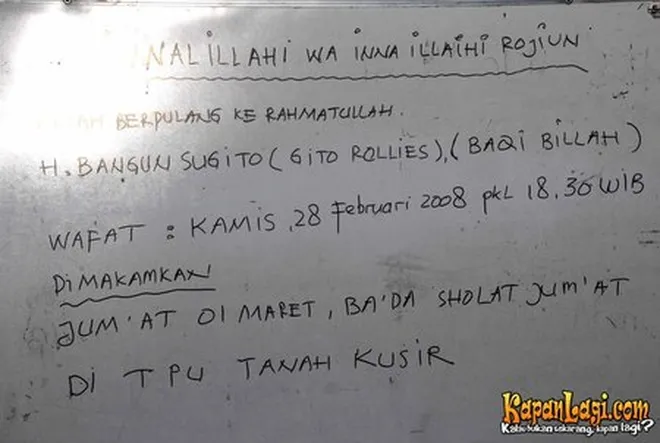 NALILLAHI WA INNA ILLAIHI ROJIUN
BERPULANG KE RAHMATULLAH.
H. BANGUN SUGITO (GITO ROLLIES), (BAQI BILLAH)
WAFAT : KAMIS, 28 Februari 2008 pkl 18.30 WIB
DIMAKAMKAN
JUM'AT 01 MARET, BA'DA SHOLAT JUM'AT
DI TPU TANAH KUSIR
KapanLagi.com
Kalau bukan sekarang, kapan lagi?